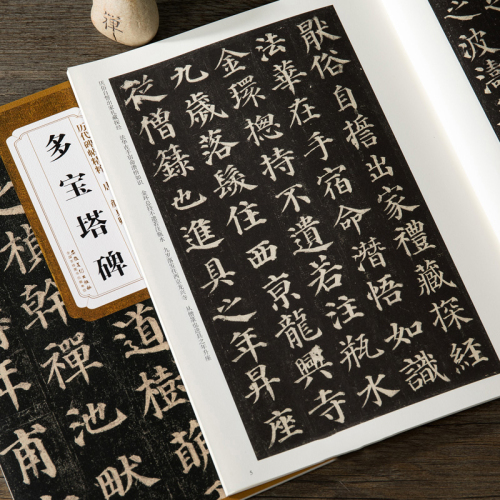 禪
猒俗自誓出家禮藏探經
法華在手宿命潛悟如識
金環揔持不遺若注瓶水
九歲落髮住西京龍興寺
從僧籙也進具之年昇座
之波濤
历代碑帖精粹
多宝塔碑
道樹萌
禪池畎
楨幹
年甫